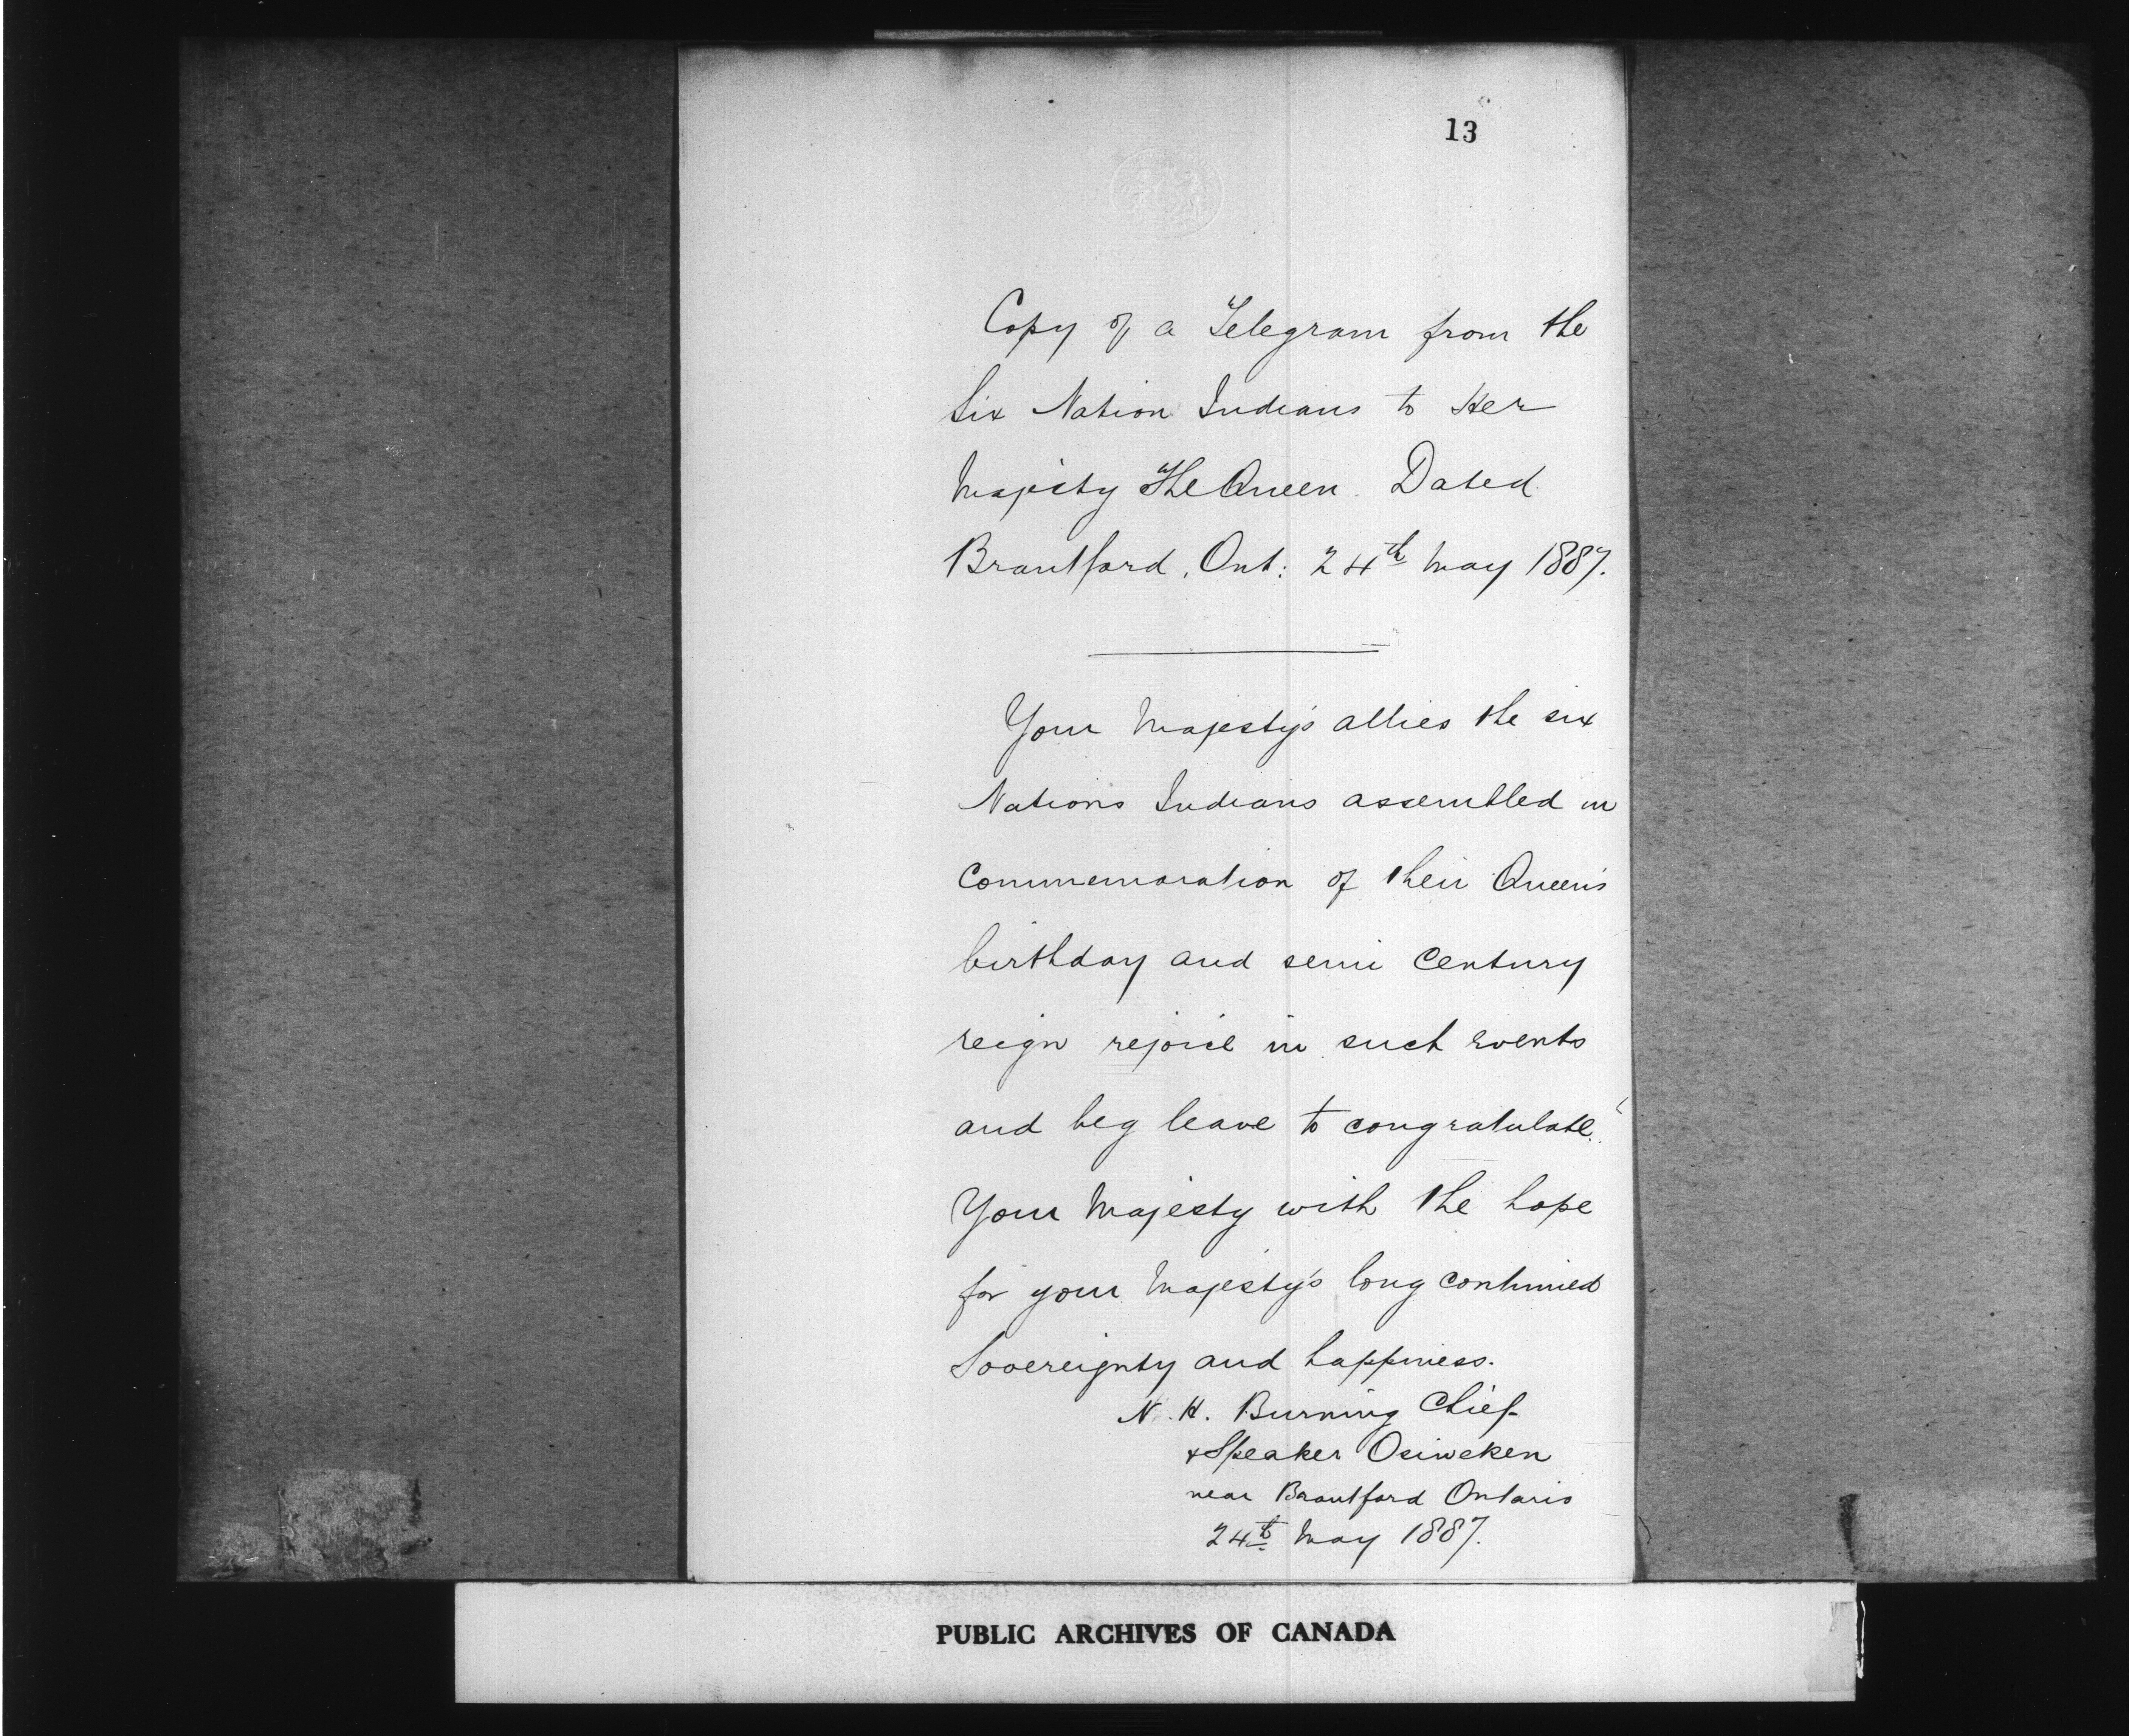 13
Copy of a Telegram from the
Six Nation Indians to Her
Majesty The Queen. Dated
Brantford, Ont: 24th May 1887.
Your Majesty's allies the six
Nations Indians assembled in
Commemoration of their Queen's
birthday and semi Century
reign rejoice in such events
and beg leave to congratulate
Your Majesty with the hope
for your Majesty's long continued
Sovereignty and happiness.
N. H. Burning Chief
& Speaker Osiweken
near Brantford Ontario
24th May 1887.
PUBLIC ARCHIVES OF CANADA